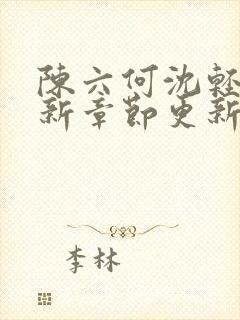 陳六何沈輕
新章節更新
李林